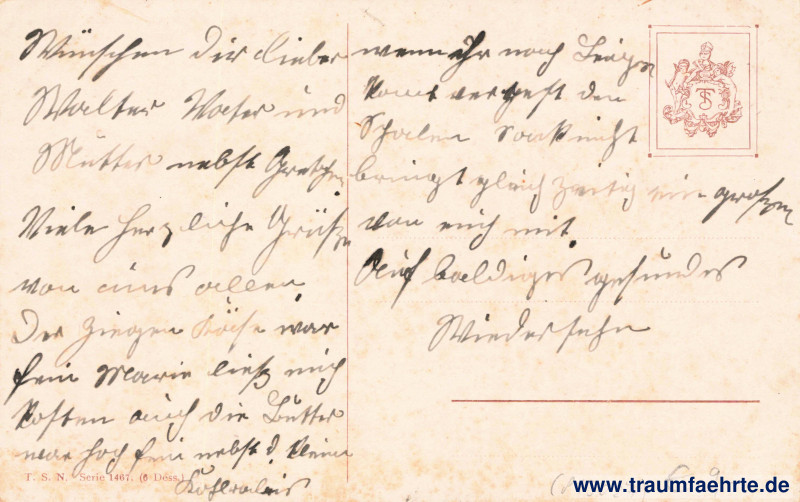 Wünschen Dir lieber
Walter Vater und
Mutter nebst Gretchen
Viele herzliche Grüße
von uns allen
Der Ziegen Käse war
fein Marie ließ mich
kosten auch die Butter
war hoch fein nebst d. klein
Kohlrabis
wenn ihr nach
komt vergest den
Schalen Sack nicht
bringt gleich zeitig ein großen
von euch mit.
Auf baldiges gesundes
Wiedersehn
TS
T. S. N. Serie 1467. (6 Dess.)
www.traumfaehrte.de